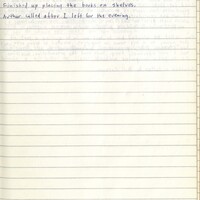 Finished up placing the books on shelves.
Author called after I left for the evening.